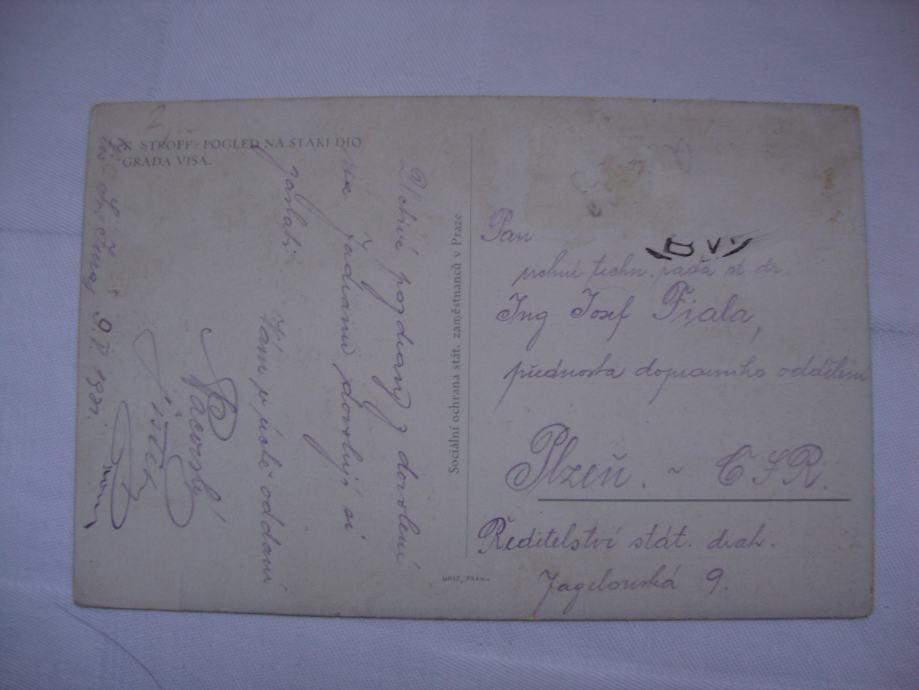 K. STROFF: POGLED NA STARI DIO
GRADA VISA.
Uctivé pozdravy z dovolené
na Jadranu dovolují si
zaslati
Vám v úctě oddaní
9.V. 193
Sociální ochrana stát. zaměstnanců v Praze
UNIE, PRAHA
Pan
vrchní techn. rada st. dr.
Ing Josef Fiala,
přednosta dopravního oddělení
Plzeň. ~ ČSR.
Ředitelství stát. drah.
Jagelonská 9.